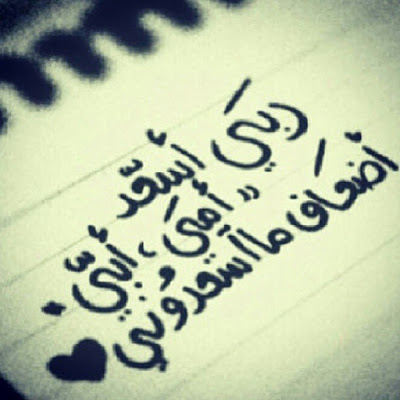 ربيَ أسعّد
" أميَ ، أبيّ "
أضعَافَ ما آسعدُوني ♥